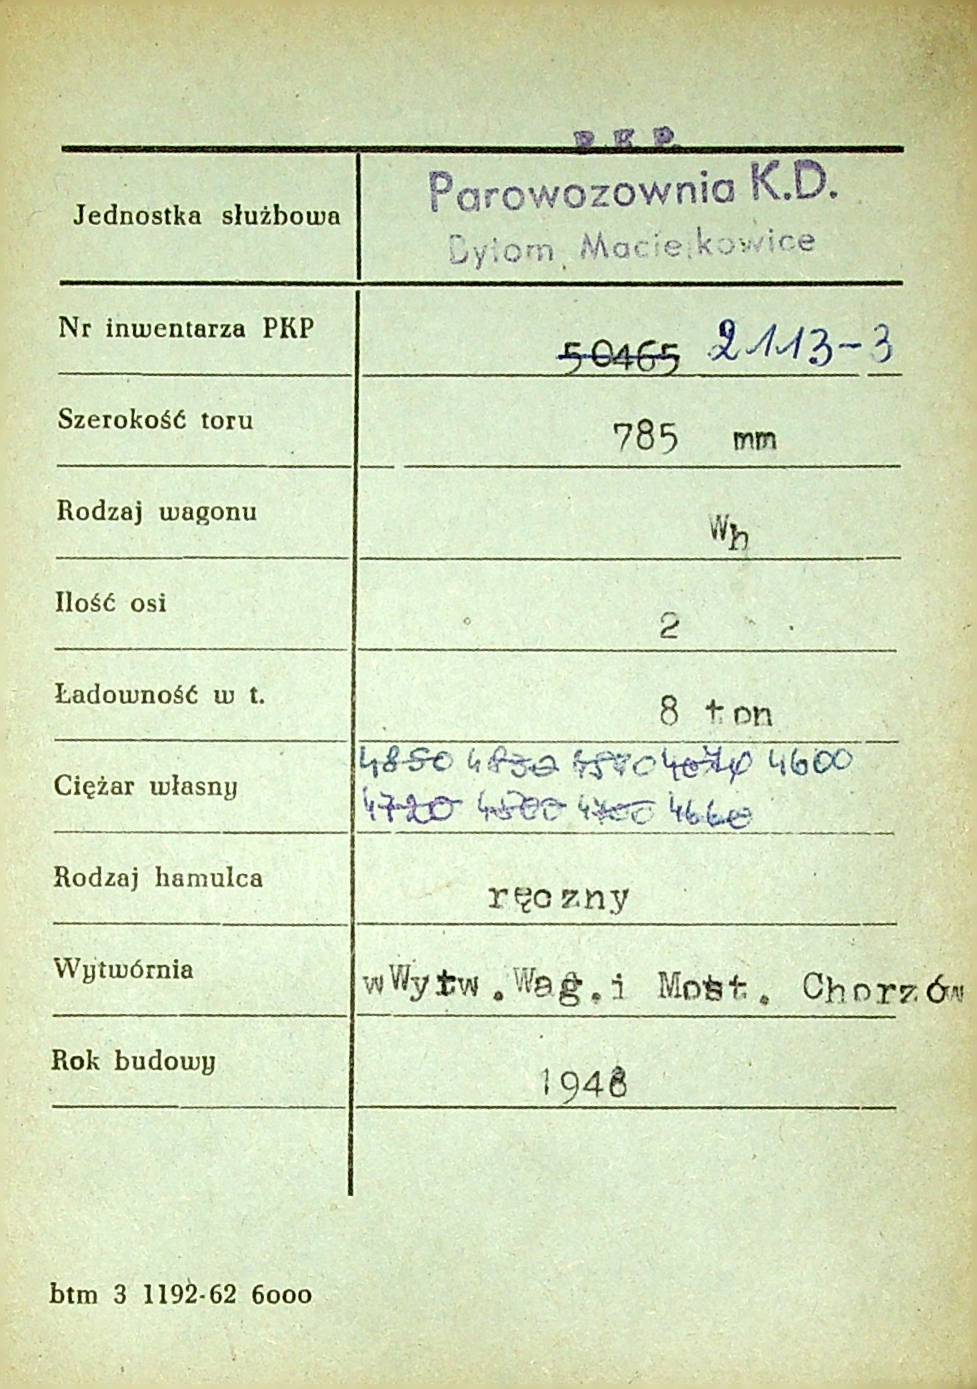 P.K.P.
Jednostka służbowa Parowozownia K.D.
Bytom Maciejkowice
Nr inwentarza PKP 50465 2113-3
Szerokość toru 785 mm
Rodzaj wagonu Wh
Ilość osi 2
Ładowność w t. 8 ton
4850 4830 4600
Ciężar własny
4720 4700 4660
Rodzaj hamulca ręczny
Wytwórnia wWytw.Wag.i Most. Chorzów
Rok budowy 1948
btm 3 1192-62 6000